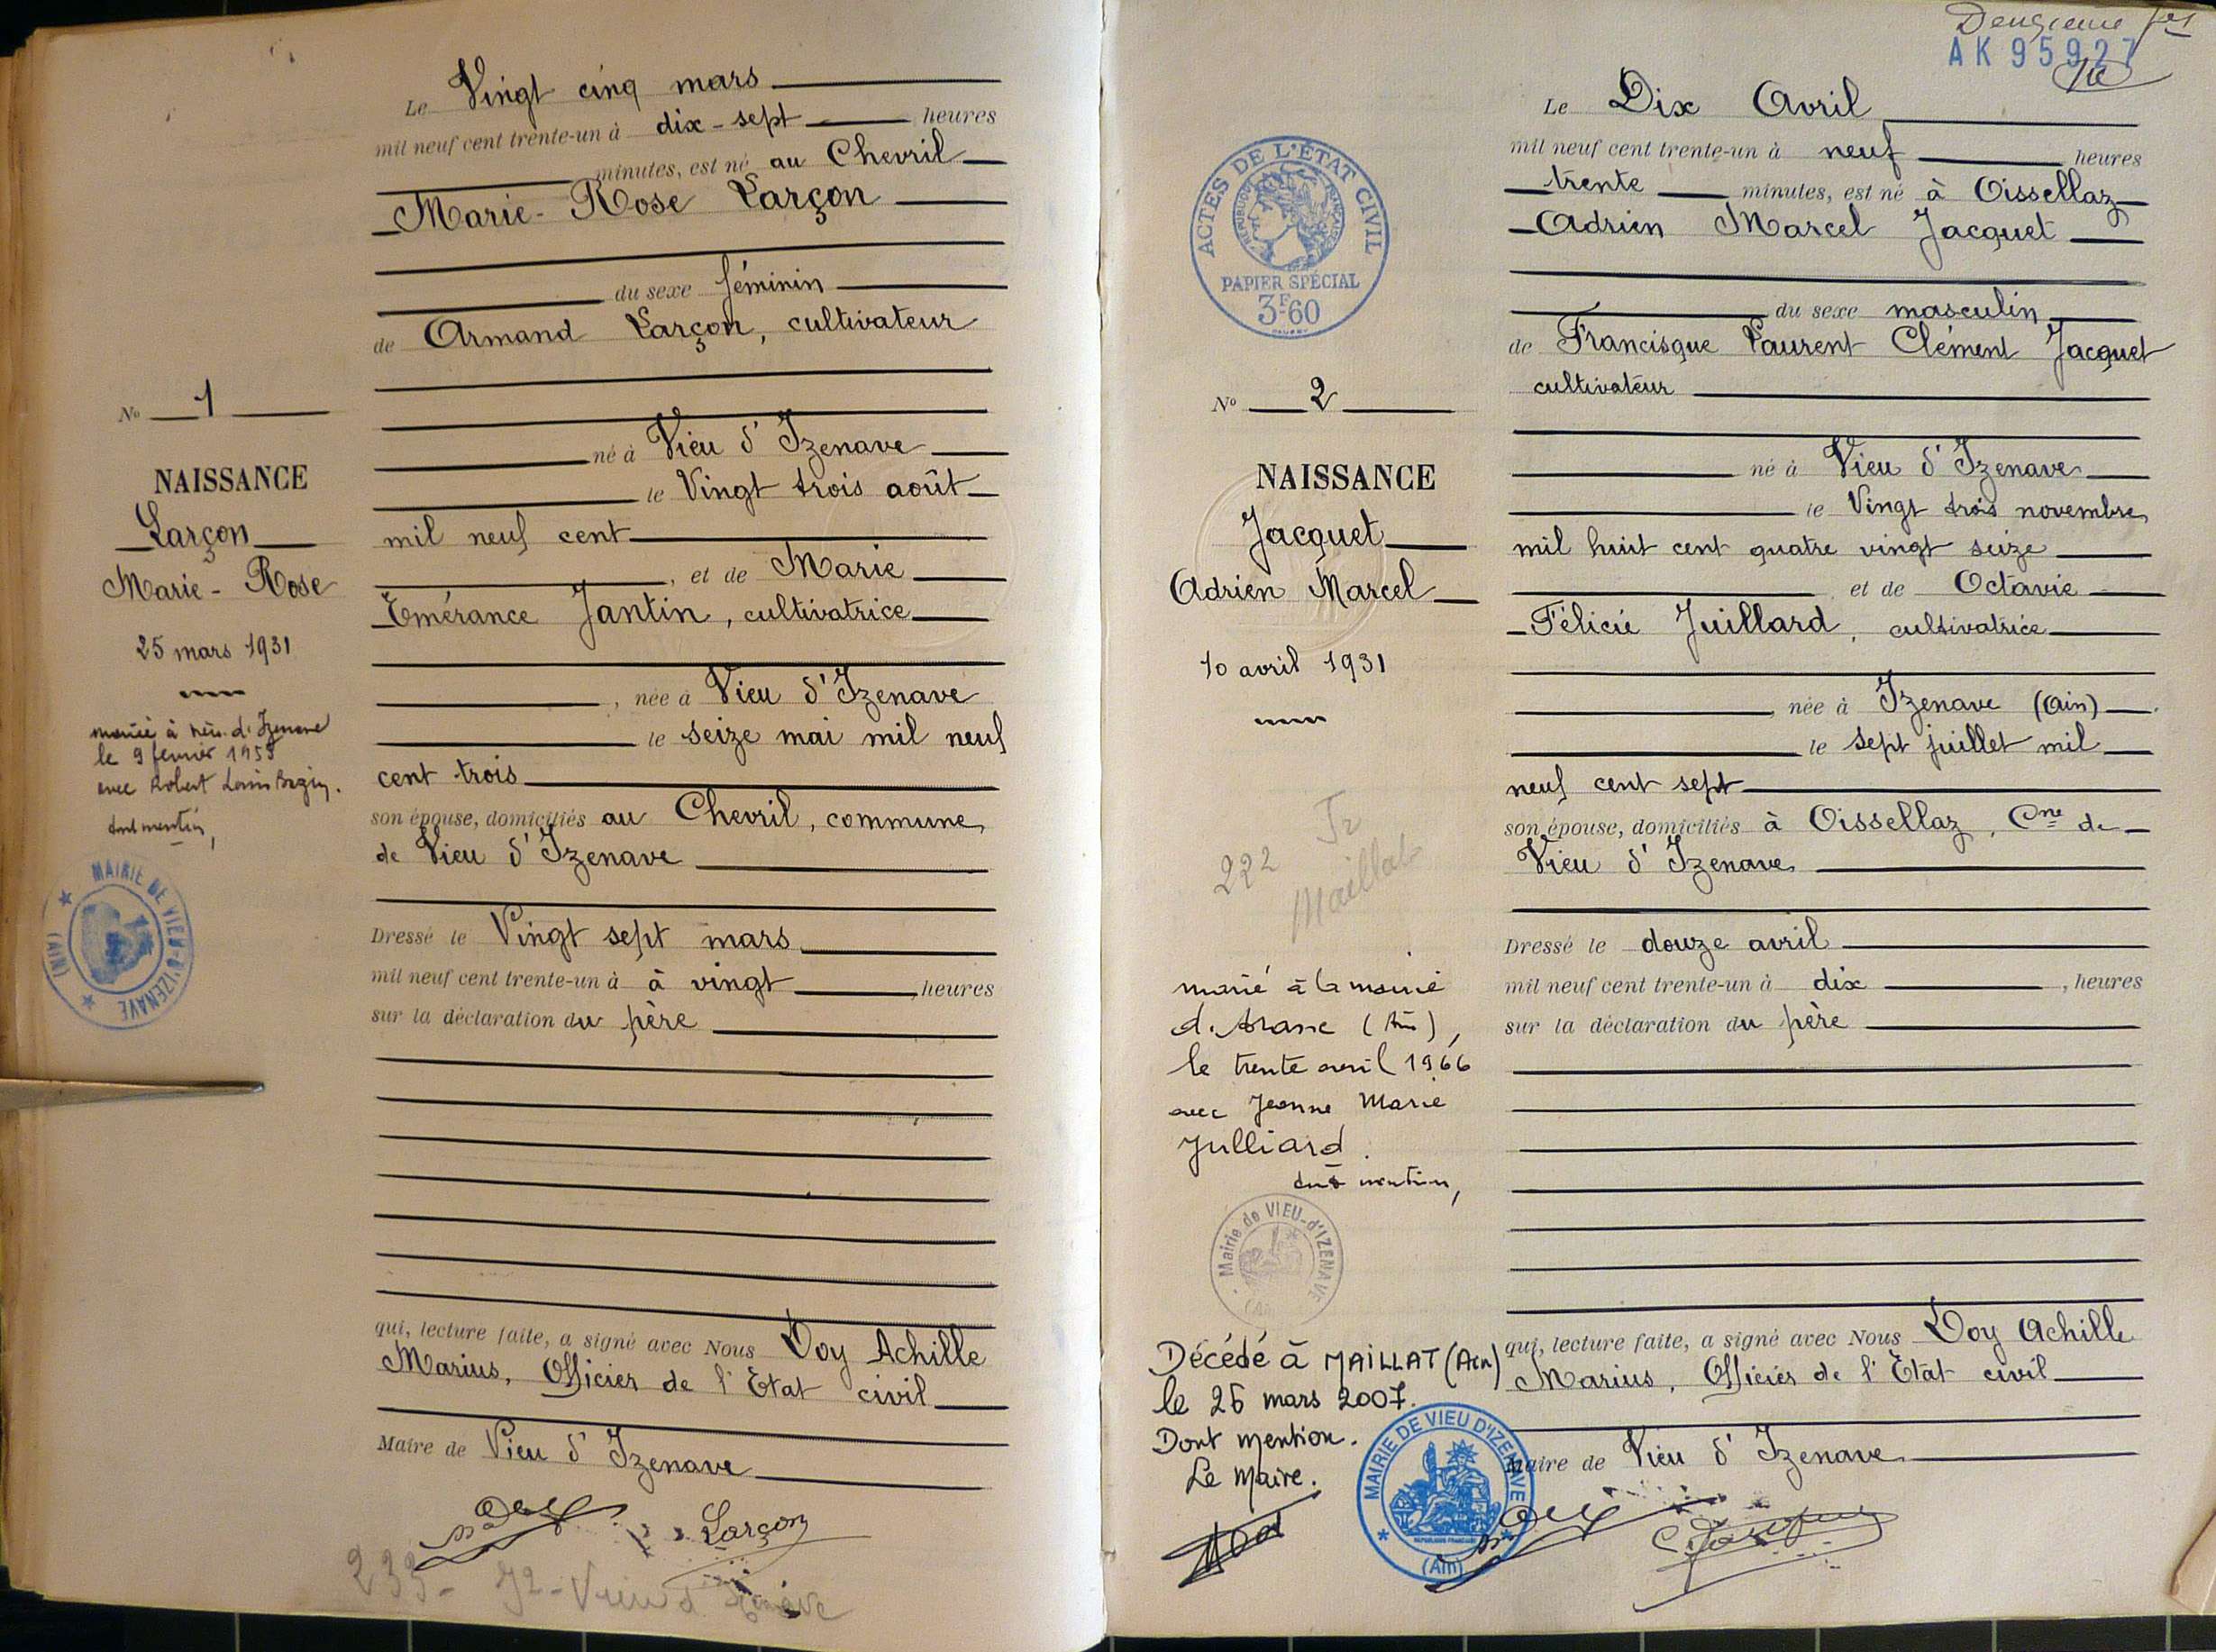 Le Vingt cinq mars
mil neuf cent trente-un à dix-sept heures
minutes, est né au Chevril
Marie-Rose Larçon
du sexe féminin
de Armand Larçon, cultivateur
né à Vieu d'Izenave
le Vingt trois août
mil neuf cent
, et de Marie
Émérance Jantin, cultivatrice
, née à Vieu d'Izenave
le seize mai mil neuf
cent trois
son épouse, domiciliés au Chevril, commune
de Vieu d'Izenave
Dressé le Vingt sept mars
mil neuf cent trente-un à à vingt heures
sur la déclaration du père
qui, lecture faite, a signé avec Nous Doy Achille
Marius, Officier de l'État civil
Maire de Vieu d'Izenave
Larçon
233-
No 1
NAISSANCE
Larçon
Marie-Rose
25 mars 1931
mariée à Vieu d'Izenave
le 9 février 1953
avec Robert Louis
dont mention,
MAIRIE DE VIEU-D'IZENAVE
(AIN)
Deuxième
AK 95927
Le Dix Avril
mil neuf cent trente-un à neuf heures
trente minutes, est né à Oissellaz
Adrien Marcel Jacquet
du sexe masculin
de Francisque Laurent Clément Jacquet
cultivateur
né à Vieu d'Izenave
le Vingt trois novembre
mil huit cent quatre vingt seize
et de Octavie
Félicie Juillard, cultivatrice
née à Izenave (Ain)
le sept juillet mil
neuf cent sept
son épouse, domiciliés à Oissellaz, Cne de
Vieu d'Izenave
Dressé le douze avril
mil neuf cent trente-un à dix , heures
sur la déclaration du père
qui, lecture faite, a signé avec Nous Doy Achille
Marius, Officier de l'État civil
Maire de Vieu d'Izenave
ACTES DE L'ÉTAT CIVIL
RÉPUBLIQUE FRANÇAISE
PAPIER SPÉCIAL
3F60
No 2
NAISSANCE
Jacquet
Adrien Marcel
10 avril 1931
222 Maillat
marié à la mairie
d'Aranc (Ain),
le trente avril 1966
avec Jeanne Marie
Julliard.
dont mention,
Mairie de VIEU-d'IZENAVE
Décédé à MAILLAT (Ain)
le 26 mars 2007.
Dont mention.
Le Maire.
MAIRIE DE VIEU D'IZENAVE
RÉPUBLIQUE FRANÇAISE
(Ain)